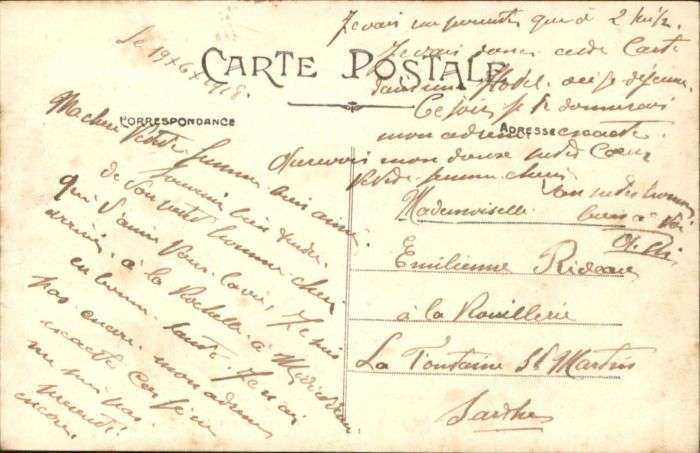 Le 19 x 6 x 1918.
CARTE POSTALE
CORRESPONDANCE
ADRESSE
Ma chère Petite femme bien aimée.
Souvenir bien tendre
de Son petit homme chéri
qui t'aime pour la vie, Je suis
arrivé à la Rochelle à Midi
en bonne santé. Je n'ai
pas encore mon adresse
exacte car je
ne suis pas
encore.
Je vais
que à 2 h 1/2.
Je vais donc cette Carte
dans un Hôtel où je déjeune.
Ce soir je te donnerai
mon adresse exacte.
Au revoir mon doux petit Cœur
Petite femme chérie
ton petit homme
Mademoiselle
bien à toi
Emilienne Rideau
à la Rouillerie
La Fontaine St Martin
Sarthe